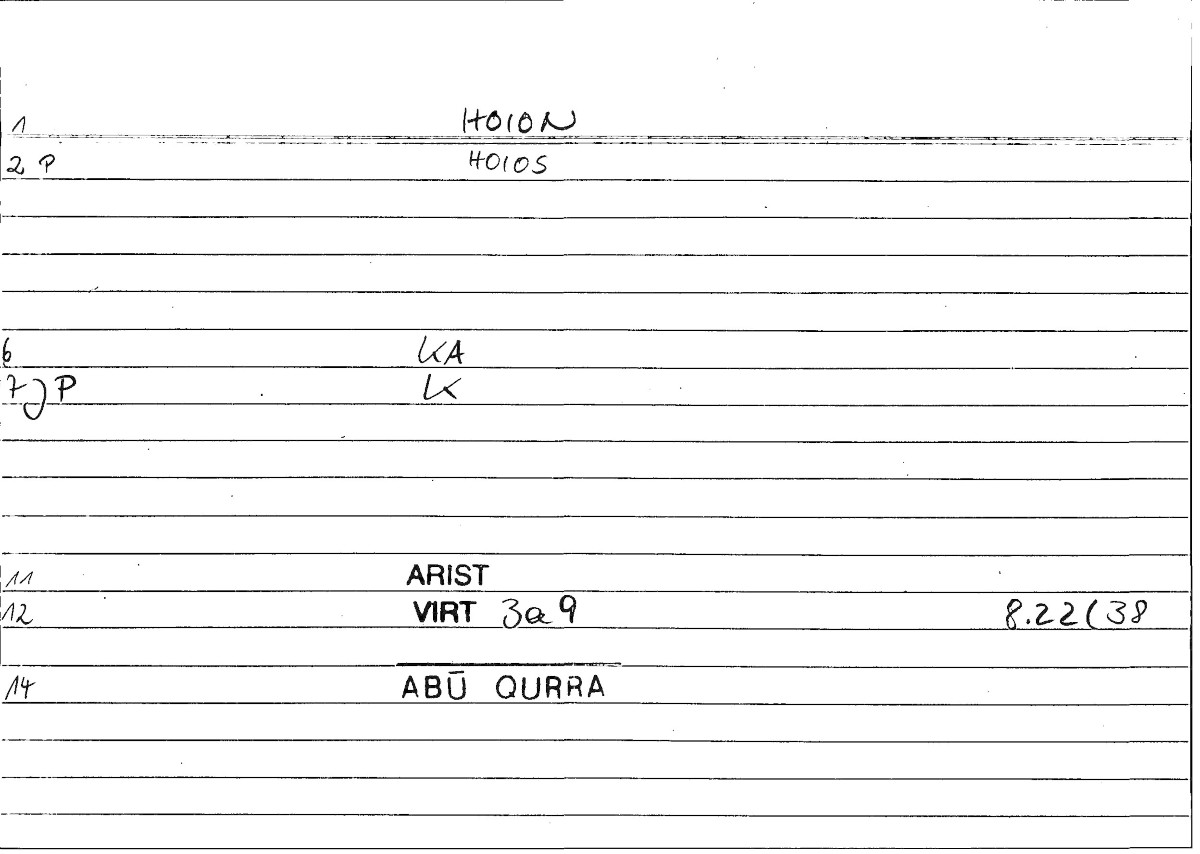 1 HOION
2 P HOIOS
6 KA
7 J P K
11 ARIST
12 VIRT 3a9 8.22(38
14 ABŪ QURRA